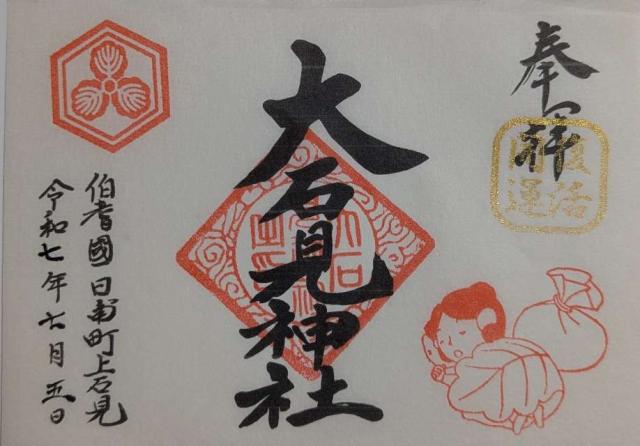 奉拝
復活
開運
大石見神社
伯耆國日南町上石見
令和七年六月五日